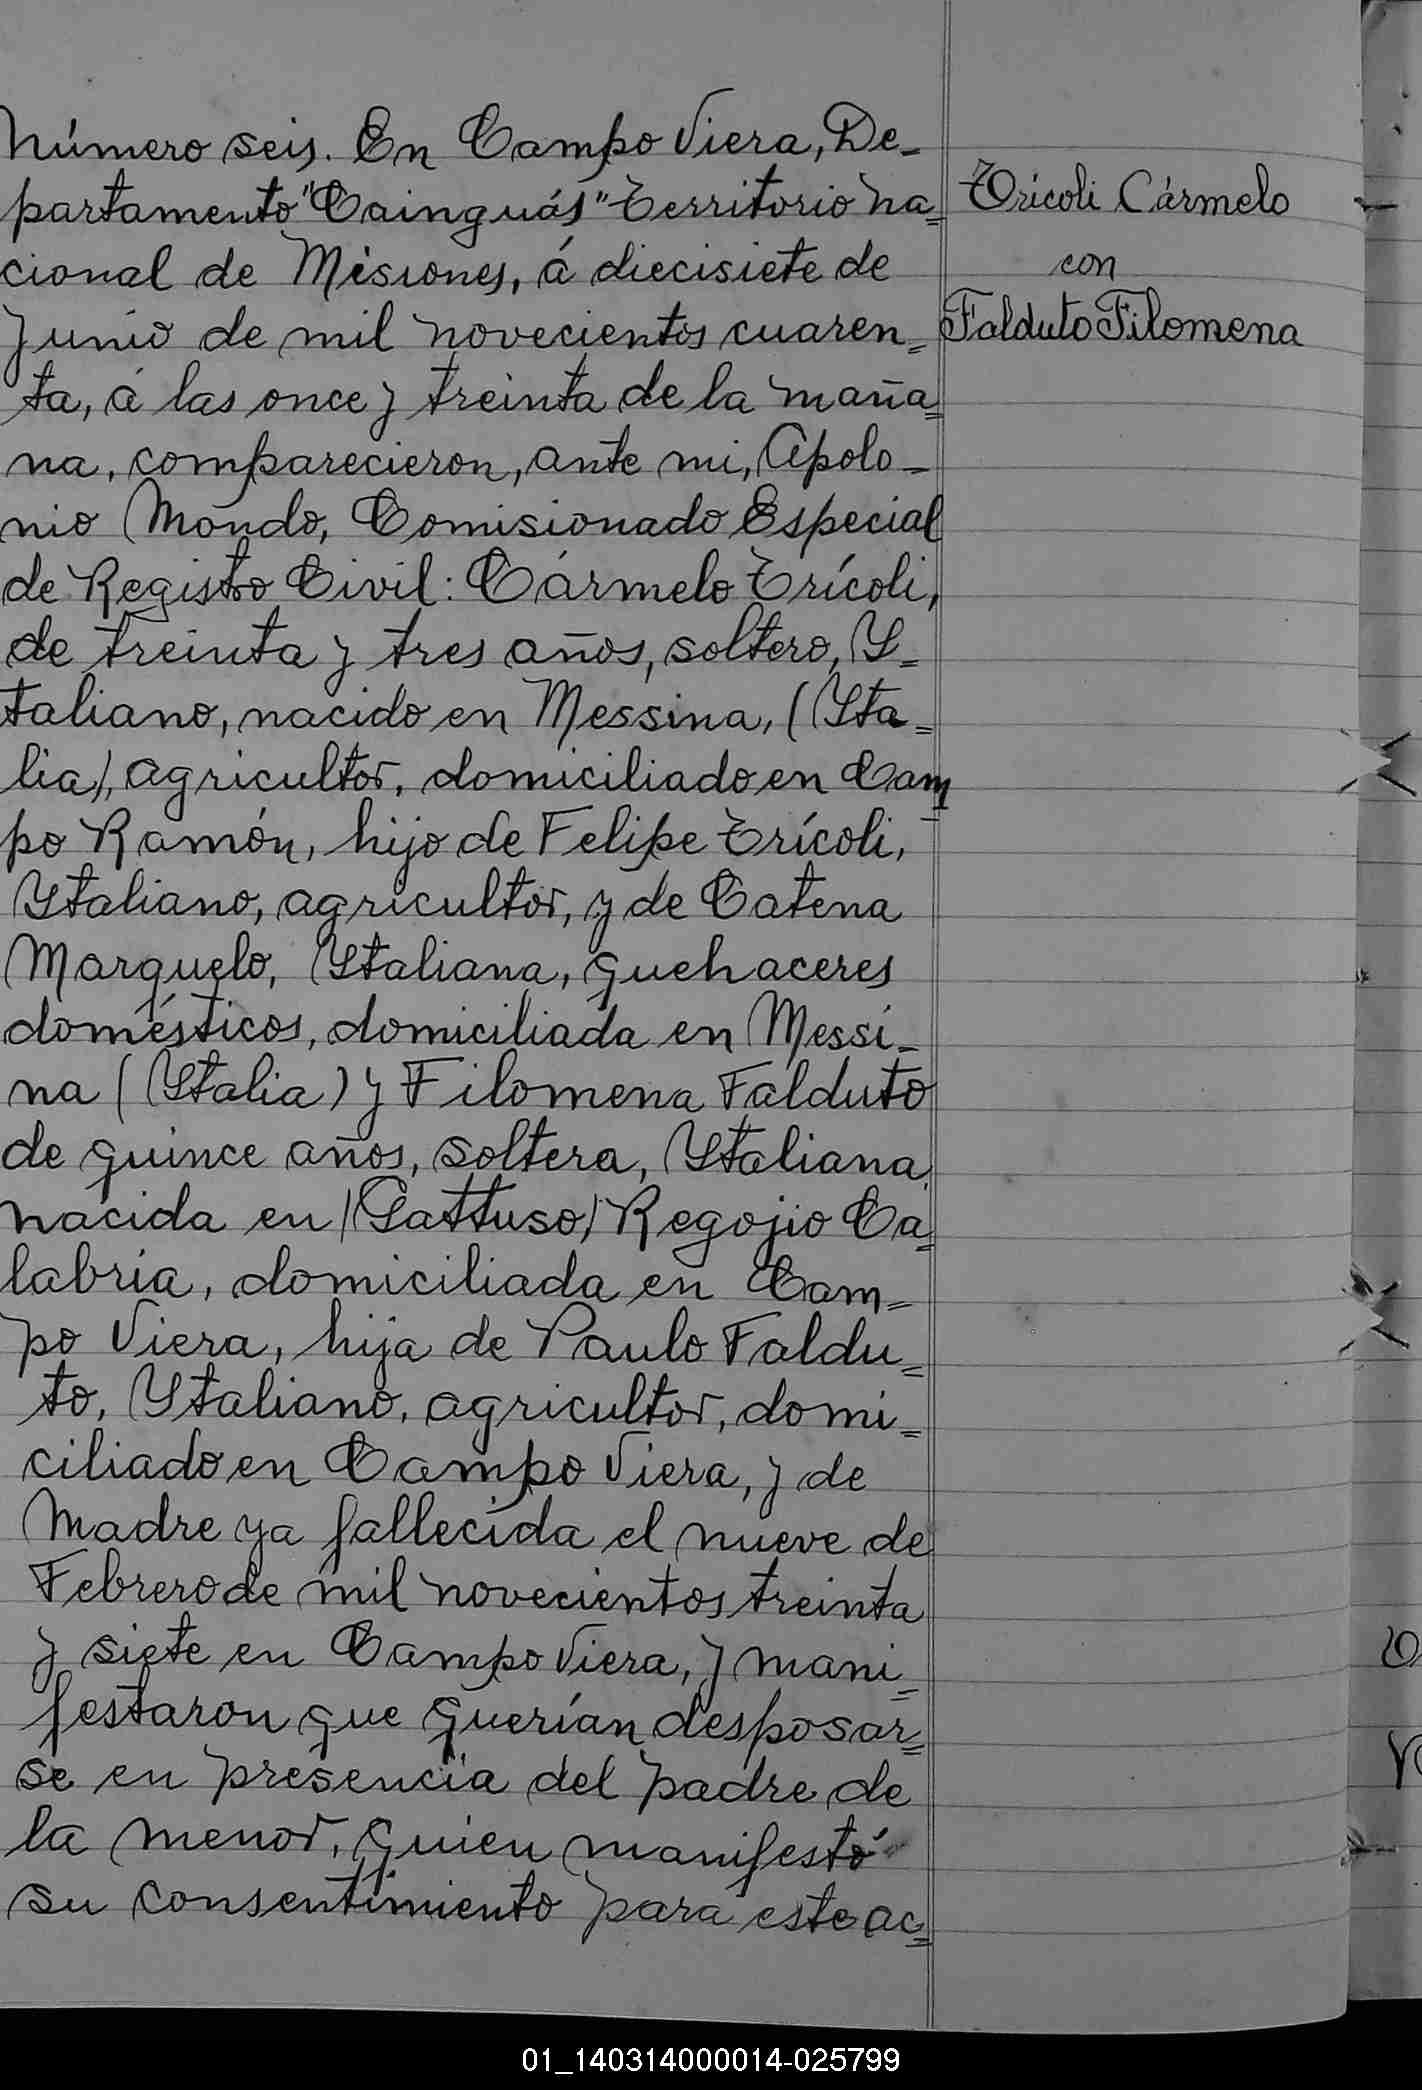 Número seis. En Campo Viera, De-
partamento "Cainguás" Territorio Na=
cional de Misiones, á diecisiete de
Junio de mil novecientos cuaren=
ta, á las once y treinta de la maña=
na, comparecieron, ante mi, Apolo-
nio Mondo, Comisionado Especial
de Registro Civil: Cármelo Trícoli,
de treinta y tres años, soltero, Y=
taliano, nacido en Messina, (Yta=
lia), agricultor, domiciliado en Cam
po Ramón, hijo de Felipe Trícoli,
Ytaliano, agricultor, y de Catena
Marquelo, Ytaliana, quehaceres
domésticos, domiciliada en Messi-
na (Ytalia) y Filomena Falduto
de quince años, soltera, Ytaliana,
nacida en (Gattuso) Regojio Ca=
labria, domiciliada en Cam=
po Viera, hija de Paulo Faldu=
to, Ytaliano, agricultor, domi=
ciliado en Campo Viera, y de
Madre ya fallecida el nueve de
Febrero de mil novecientos treinta
y siete en Campo Viera, y mani=
festaron que querían desposar=
se en presencia del padre de
la menor, quien manifestó
su consentimiento para este ac=
Trícoli Cármelo
con
Falduto Filomena
01_140314000014-025799